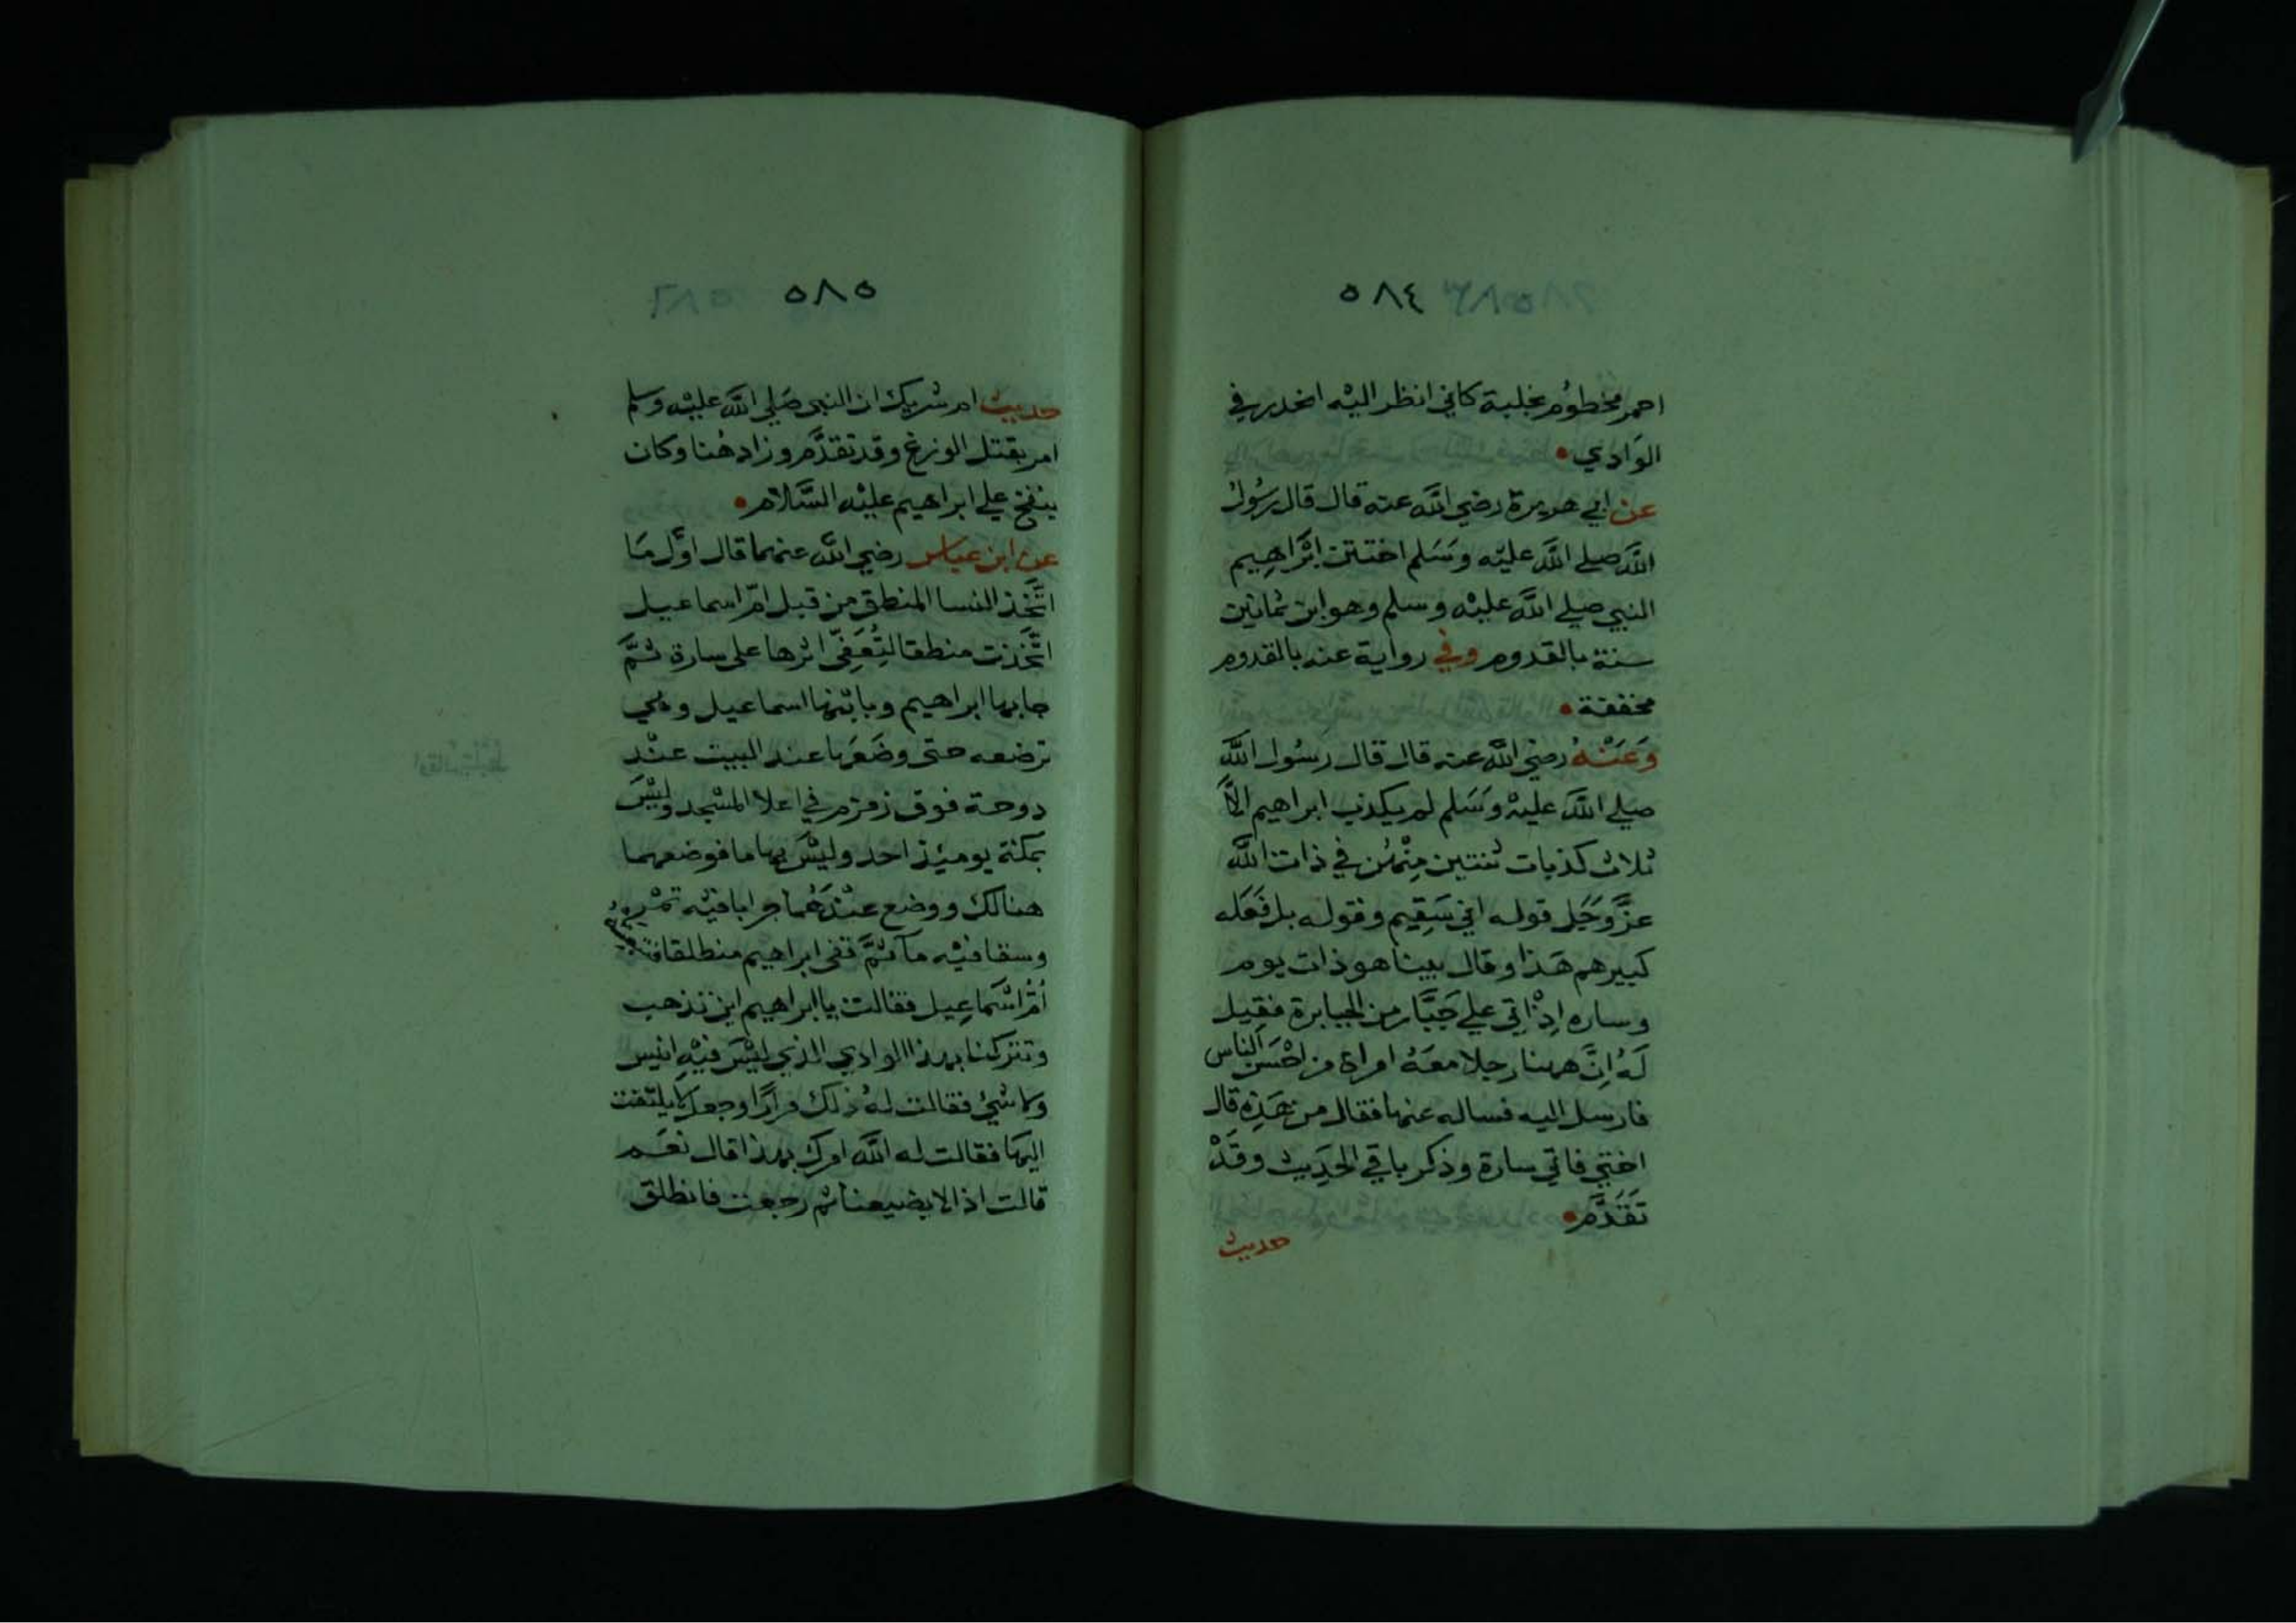 ٥٨٤
احمر مخطوم بخلبة كاني انظر اليه انحدر في
الوادي
عن ابي هريرة رضي الله عنه قال قال رسول
الله صلى الله عليه وسلم اختتن ابراهيم
النبي صلى الله عليه وسلم وهو ابن ثمانين
سنة بالقدوم وفي رواية عنه بالقدوم
مخففة
وعنه رضي الله عنه قال قال رسول الله
صلى الله عليه وسلم لم يكذب ابراهيم الا
ثلاث كذبات ثنتين منهن في ذات الله
عز وجل قوله اني سقيم وقوله بل فعله
كبيرهم هذا وقال بينا هو ذات يوم
وساره اذ اتي على جبار من الجبابرة فقيل
له ان ههنا رجلا معه امراة من احسن الناس
فارسل اليه فساله عنها فقال من هذه قال
اختي فاتي سارة وذكر باقي الحديث وقد
تقدم
حديث
٥٨٥
حديث ام شريك ان النبي صلى الله عليه وسلم
امر بقتل الوزغ وقد تقدم وزاد هنا وكان
ينفخ على ابراهيم عليه السلام
عن ابن عباس رضي الله عنهما قال اول ما
اتخذ النسا المنطق من قبل ام اسماعيل
اتخذت منطقا لتعفي اثرها على سارة ثم
جا بها ابراهيم وبابنها اسماعيل وهي
ترضعه حتى وضعها عند البيت عند
دوحة فوق زمزم في اعلا المسجد وليس
بمكة يومئذ احد وليس بها ما فوضعهما
هنالك ووضع عندهما جرابا فيه تمر
وسقا فيه مآ ثم قفى ابراهيم منطلقا فتبعته
ام اسماعيل فقالت يا ابراهيم اين تذهب
وتتركنا بهذا الوادي الذي ليس فيه انيس
ولا شيء فقالت له ذلك مرارا وجعل لا يلتفت
اليها فقالت له الله امرك بهذا قال نعم
قالت اذا لا يضيعنا ثم رجعت فانطلق